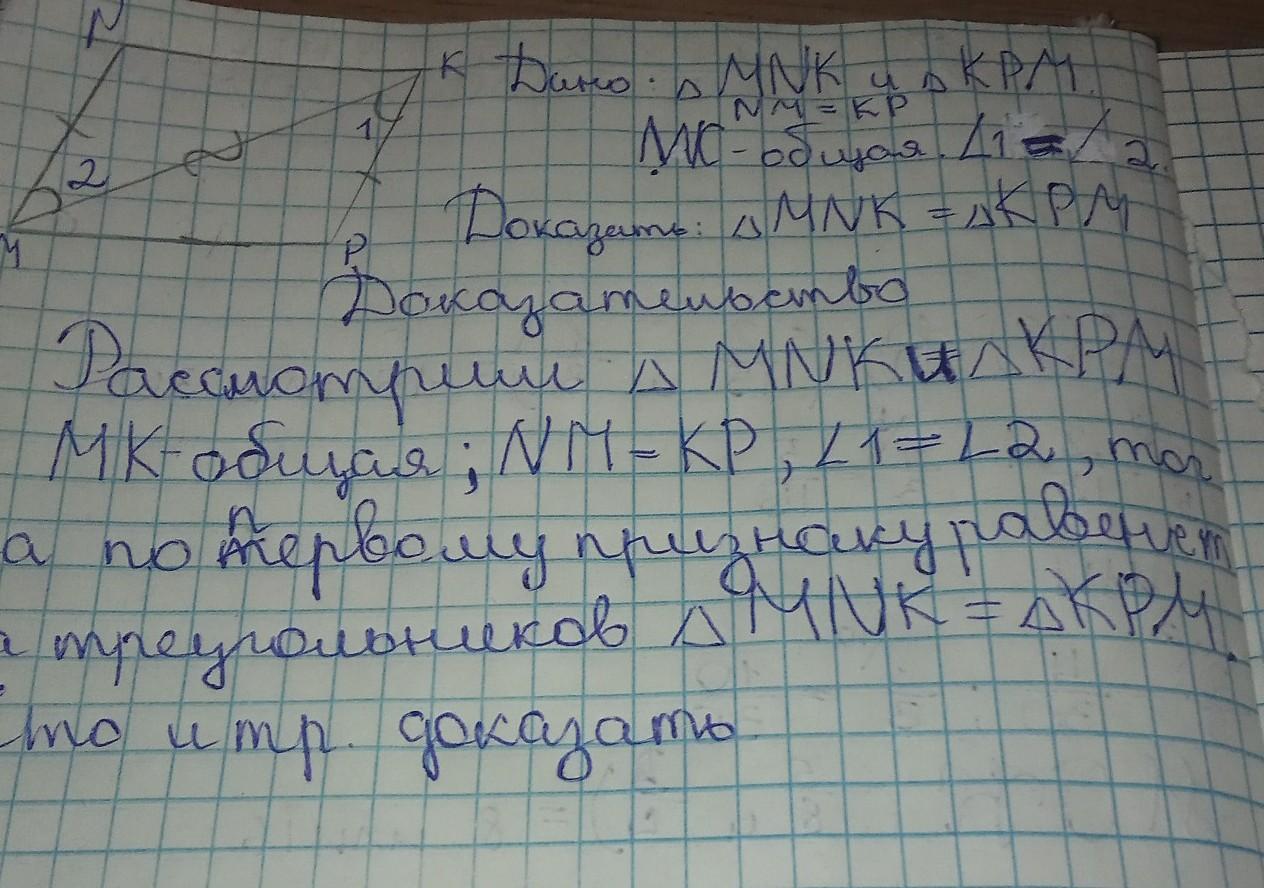 N
K Дано: △ MNK и △ KPM.
NM = KP
1
MK - общая. ∠1 = ∠2.
2
Доказать: △ MNK = △ KPM
M
P
Доказательство
Рассмотрим △ MNK и △ KPM
MK - общая; NM = KP, ∠1 = ∠2, тог
а по первому признаку равенст
а треугольников △ MNK = △ KPM.
то и тр. доказать